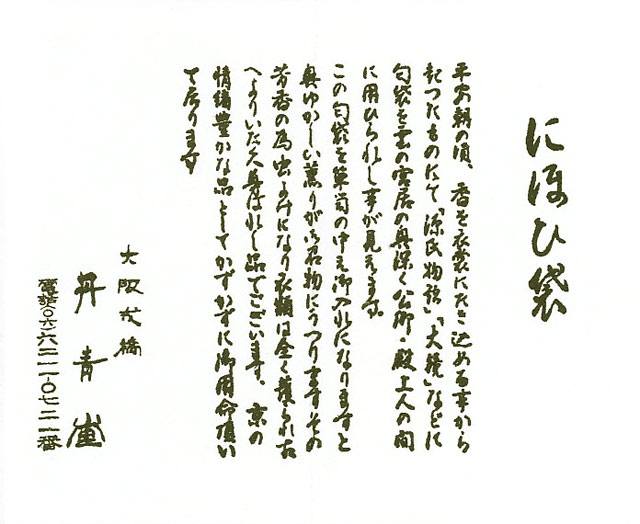 にほひ袋
平安朝の頃、香を衣裳にたき込める事から
起つたものにて「源氏物語」「大鏡」などに
匂袋を雲の宮居の奥深く公卿・殿上人の間
に用ひられし事が見えます。
この匂袋を箪笥の中え御入れになりますと
奥ゆかしい薫りが御召物にうつりますその
芳香の為虫よけになり衣類は全く護られ古
へよりいた久尊ばれし品でございます。京の
情緒豊かな品としてかずかずに御用命頂い
て居ります
大阪戎橋
丹青堂
電話〇六二六二一一・〇七二一番